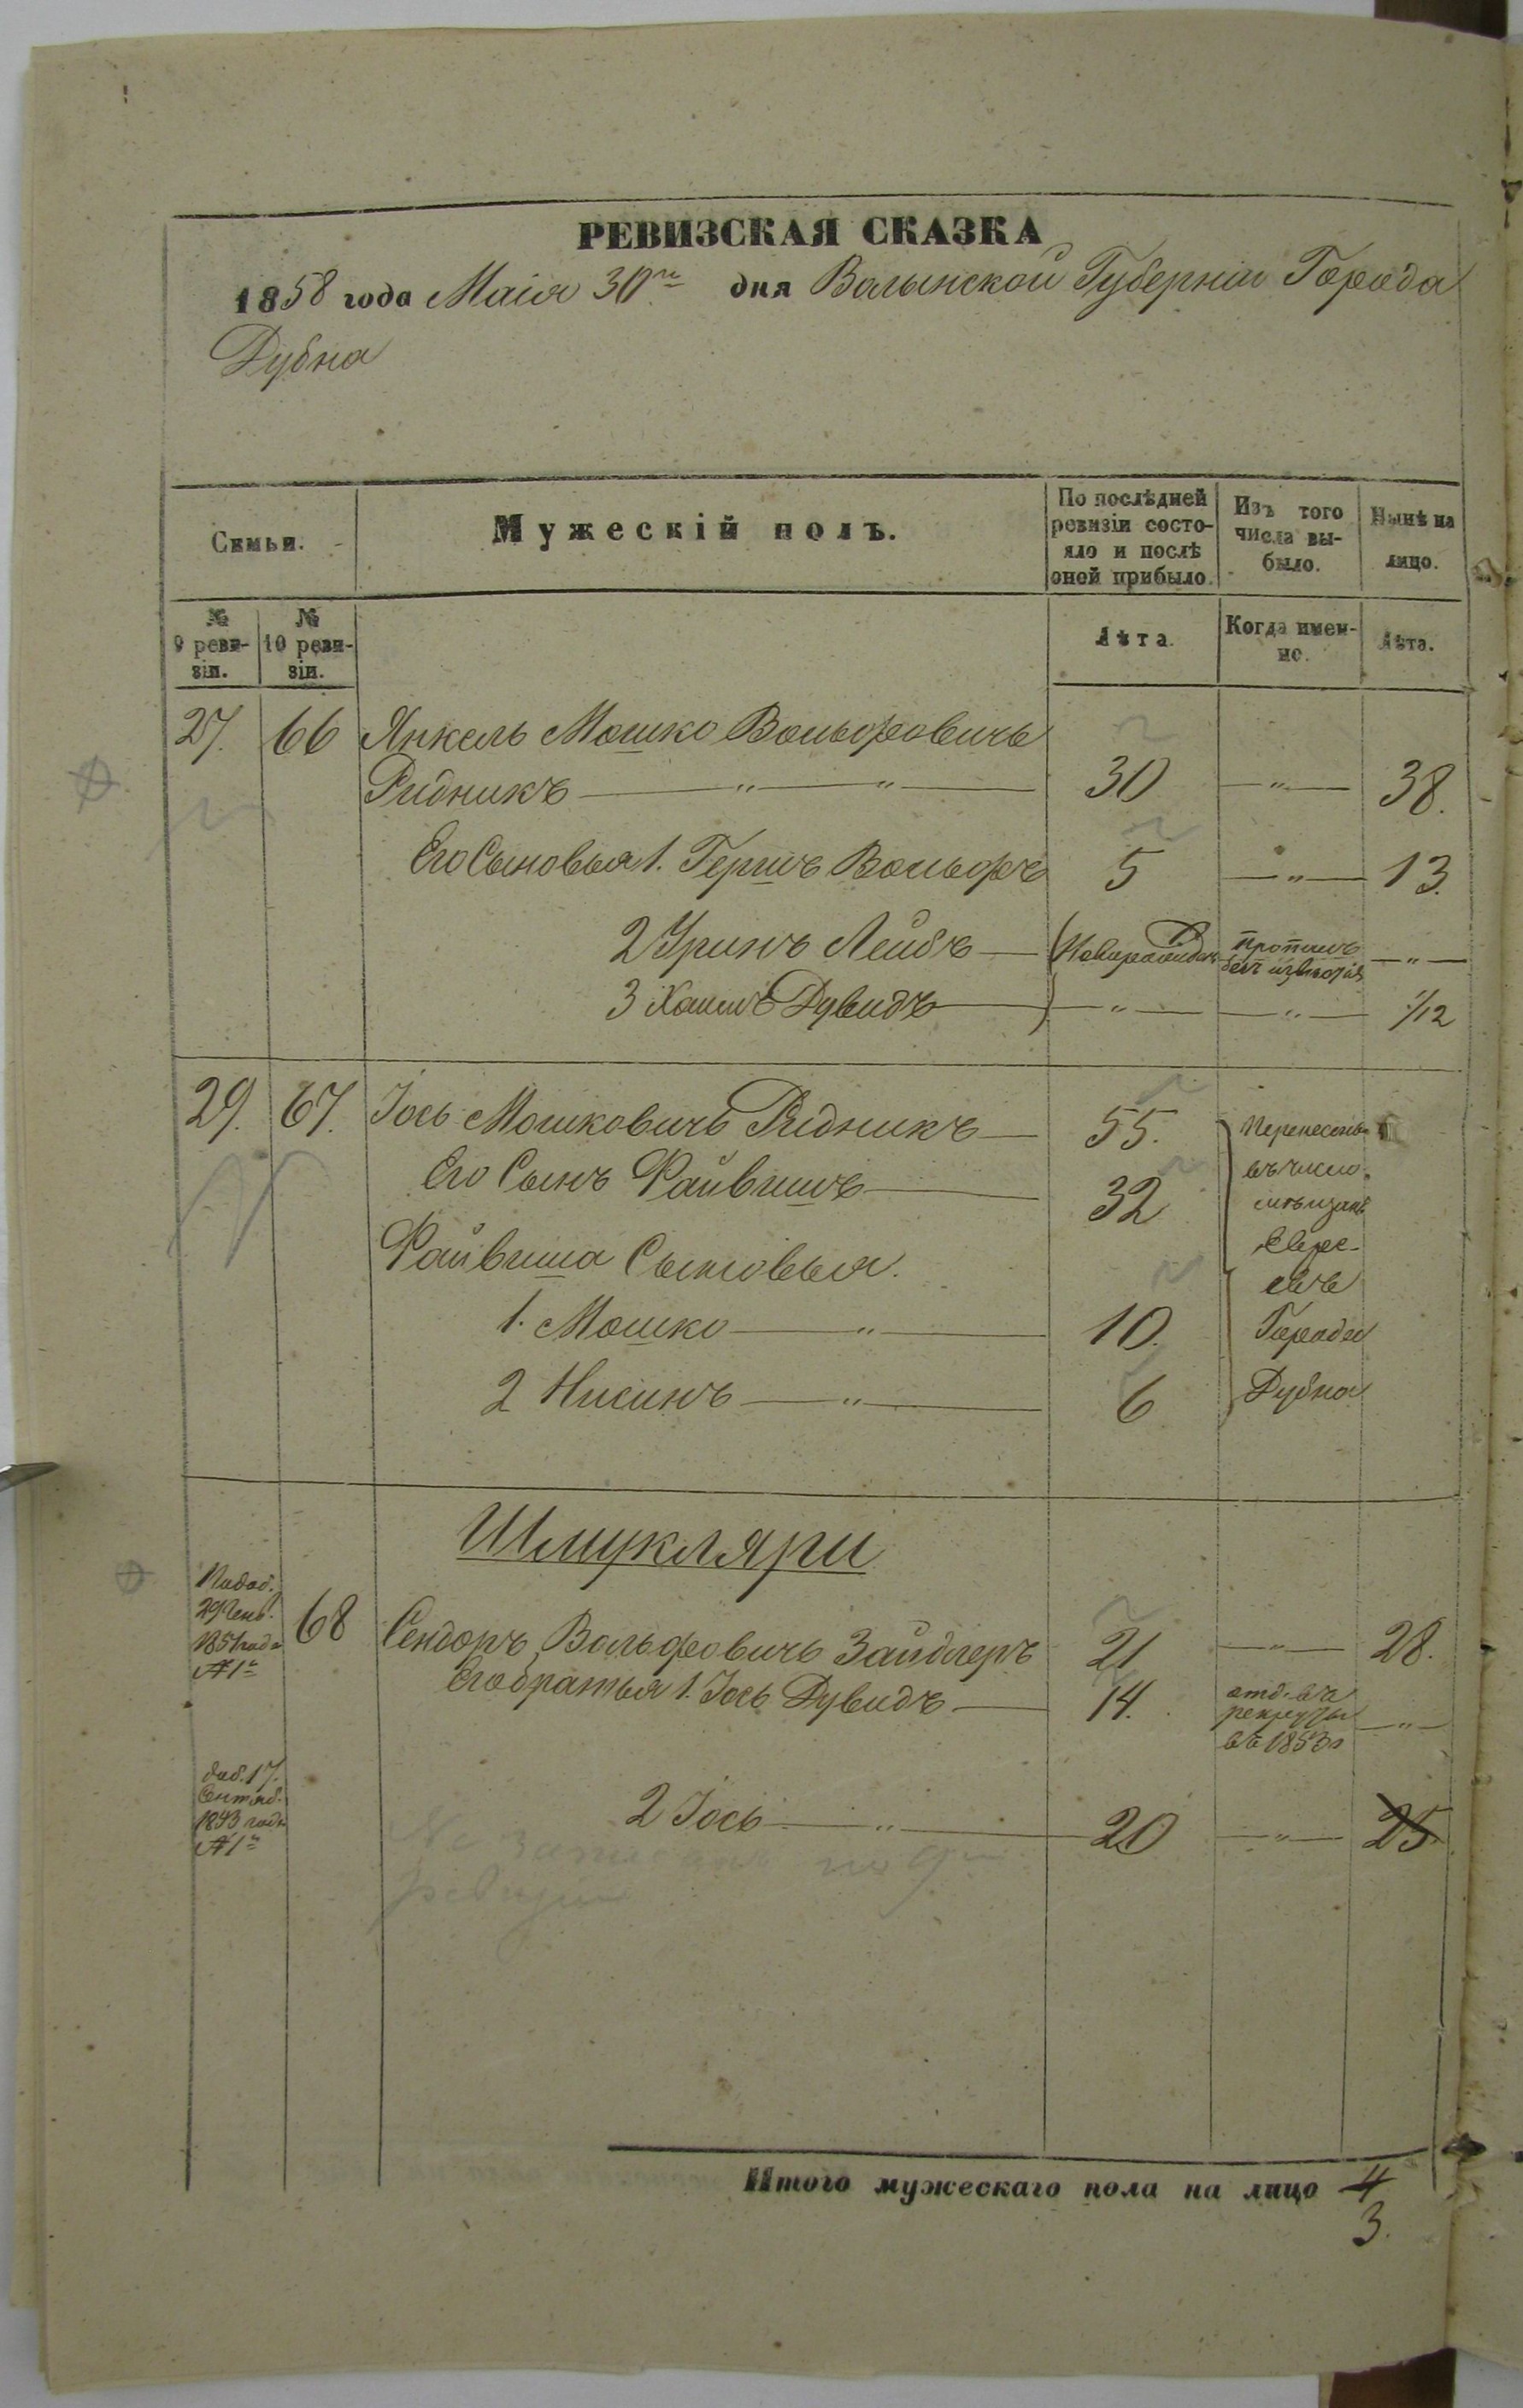 РЕВИЗСКАЯ СКАЗКА
1858 года Маія 30го дня Волынской Губерніи Города
Дубна
Семьи.
Мужескій полъ.
По послѣдней ревизіи состо-яло и послѣ оней прибыло.
Изъ того числа вы-было.
Нынѣ на лицо.
№ 9 реви-зіи.
№ 10 реви-зіи.
Лѣта.
Когда имен-но.
Лѣта.
27. 66 Янкель Мошко Вольфовичъ
Ридникъ — " — " — 30 — " — 38.
Его Сыновья 1. Гершъ Вольфъ 5 — " — 13.
2 Уринъ Лейбъ — пропалъ безъ — " —
3 Хаимъ Дувидъ — " — " — 1/12
29. 67. Іось Мошковичъ Ридникъ — 55. Перенесены
Его Сынъ Файвишъ — 32 въ число мѣщанъ
Файвиша Сыновья. Евре-евъ
1. Мошко — " — 10. Города
2 Нисинъ — " — 6 Дубна
Шмукляри
29 Генв. 1851 года №1й
68 Сендоръ Вольфовичъ Зайдлеръ 21 — " — 28.
Его братья 1. Іось Дувидъ — 14. отд. въ рекруты въ 1853 г — " —
17. Сентяб. 1843 года №1й
2 Іось — " — 20 — " — 25
Не записанъ по 9й
ревизіи
Итого мужескаго пола на лицо 4
3.